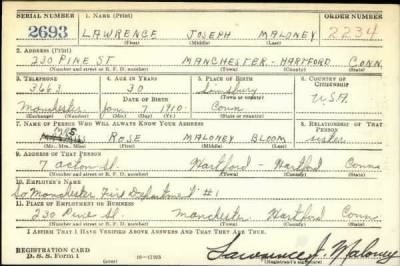 SERIAL NUMBER 1. NAME (Print) ORDER NUMBER
2693 LAWRENCE JOSEPH MALONEY 2234
(First) (Middle) (Last)
2. ADDRESS (Print)
230 PINE ST. MANCHESTER - HARTFORD CONN.
(Number and street or R. F. D. number) (Town) (County) (State)
3. TELEPHONE 4. AGE IN YEARS 5. PLACE OF BIRTH 6. COUNTRY OF CITIZENSHIP
3663 30 Simsbury
DATE OF BIRTH (Town or county) U.S.A.
Manchester Jan 7 1910 Conn
(Exchange) (Number) (Mo.) (Day) (Yr.) (State or country)
7. NAME OF PERSON WHO WILL ALWAYS KNOW YOUR ADDRESS 8. RELATIONSHIP OF THAT PERSON
MRS ROSE MALONEY BLOOM sister
(Mr., Mrs., Miss) (First) (Middle) (Last)
9. ADDRESS OF THAT PERSON
7 Acton St. Hartford - Hartford Conn
(Number and street or R. F. D. number) (Town) (County) (State)
10. EMPLOYER'S NAME
So Manchester Fire Department #1
11. PLACE OF EMPLOYMENT OR BUSINESS
230 Pine St. Manchester Hartford Conn.
(Number and street or R. F. D. number) (Town) (County) (State)
I AFFIRM THAT I HAVE VERIFIED ABOVE ANSWERS AND THAT THEY ARE TRUE.
REGISTRATION CARD
D. S. S. Form 1 (over) Lawrence J. Maloney
(Registrant's signature)